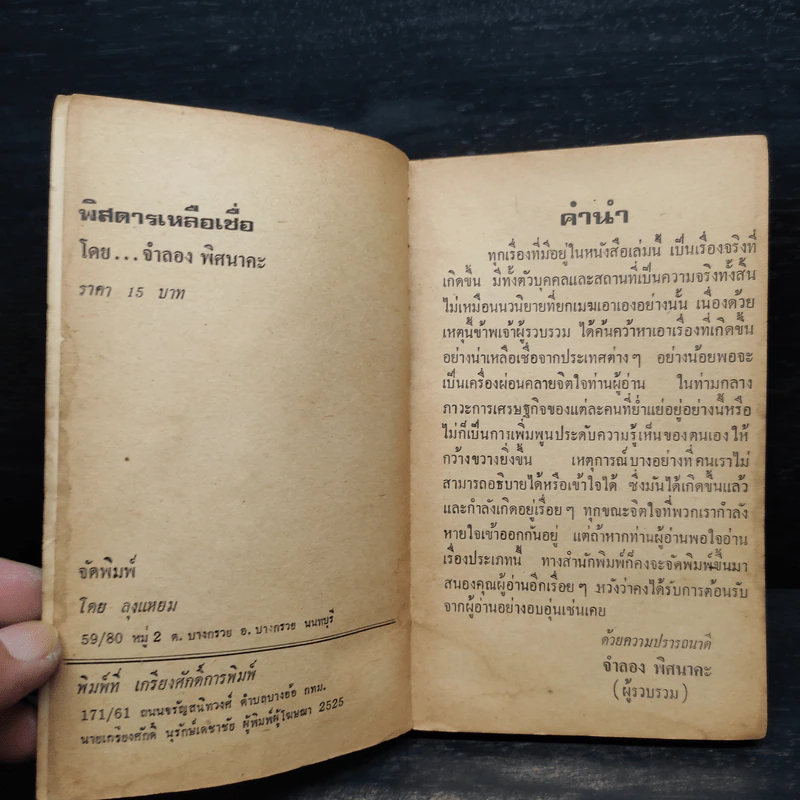 พิสดารเหลือเชื่อ
โดย...จำลอง พิศนาคะ
ราคา 15 บาท
จัดพิมพ์
โดย ลุงแหยม
59/80 หมู่ 2 ต. บางกรวย อ. บางกรวย นนทบุรี
พิมพ์ที่ เกรียงศักดิ์การพิมพ์
171/61 ถนนจรัญสนิทวงศ์ ตำบลบางอ้อ กทม.
นายเกรียงศักดิ์ นุรักษ์เดชาชัย ผู้พิมพ์ผู้โฆษณา 2525
คำนำ
ทุกเรื่องที่มีอยู่ในหนังสือเล่มนี้ เป็นเรื่องจริงที่
เกิดขึ้น มีทั้งตัวบุคคลและสถานที่เป็นความจริงทั้งสิ้น
ไม่เหมือนนวนิยายที่ยกเมฆเอาเองอย่างนั้น เนื่องด้วย
เหตุนี้ข้าพเจ้าผู้รวบรวม ได้ค้นคว้าหาเอาเรื่องที่เกิดขึ้น
อย่างน่าเหลือเชื่อจากประเทศต่าง ๆ อย่างน้อยพอจะ
เป็นเครื่องผ่อนคลายจิตใจท่านผู้อ่าน ในท่ามกลาง
ภาวะการเศรษฐกิจของแต่ละคนที่ย่ำแย่อยู่อย่างนี้หรือ
ไม่ก็เป็นการเพิ่มพูนประดับความรู้เห็นของตนเองให้
กว้างขวางยิ่งขึ้น เหตุการณ์บางอย่างที่คนเราไม่
สามารถอธิบายได้หรือเข้าใจได้ ซึ่งมันได้เกิดขึ้นแล้ว
และกำลังเกิดอยู่เรื่อย ๆ ทุกขณะจิตใจที่พวกเรากำลัง
หายใจเข้าออกกันอยู่ แต่ถ้าหากท่านผู้อ่านพอใจอ่าน
เรื่องประเภทนี้ ทางสำนักพิมพ์ก็คงจะจัดพิมพ์ขึ้นมา
สนองคุณผู้อ่านอีกเรื่อย ๆ หวังว่าคงได้รับการต้อนรับ
จากผู้อ่านอย่างอบอุ่นเช่นเคย
ด้วยความปรารถนาดี
จำลอง พิศนาคะ
(ผู้รวบรวม)